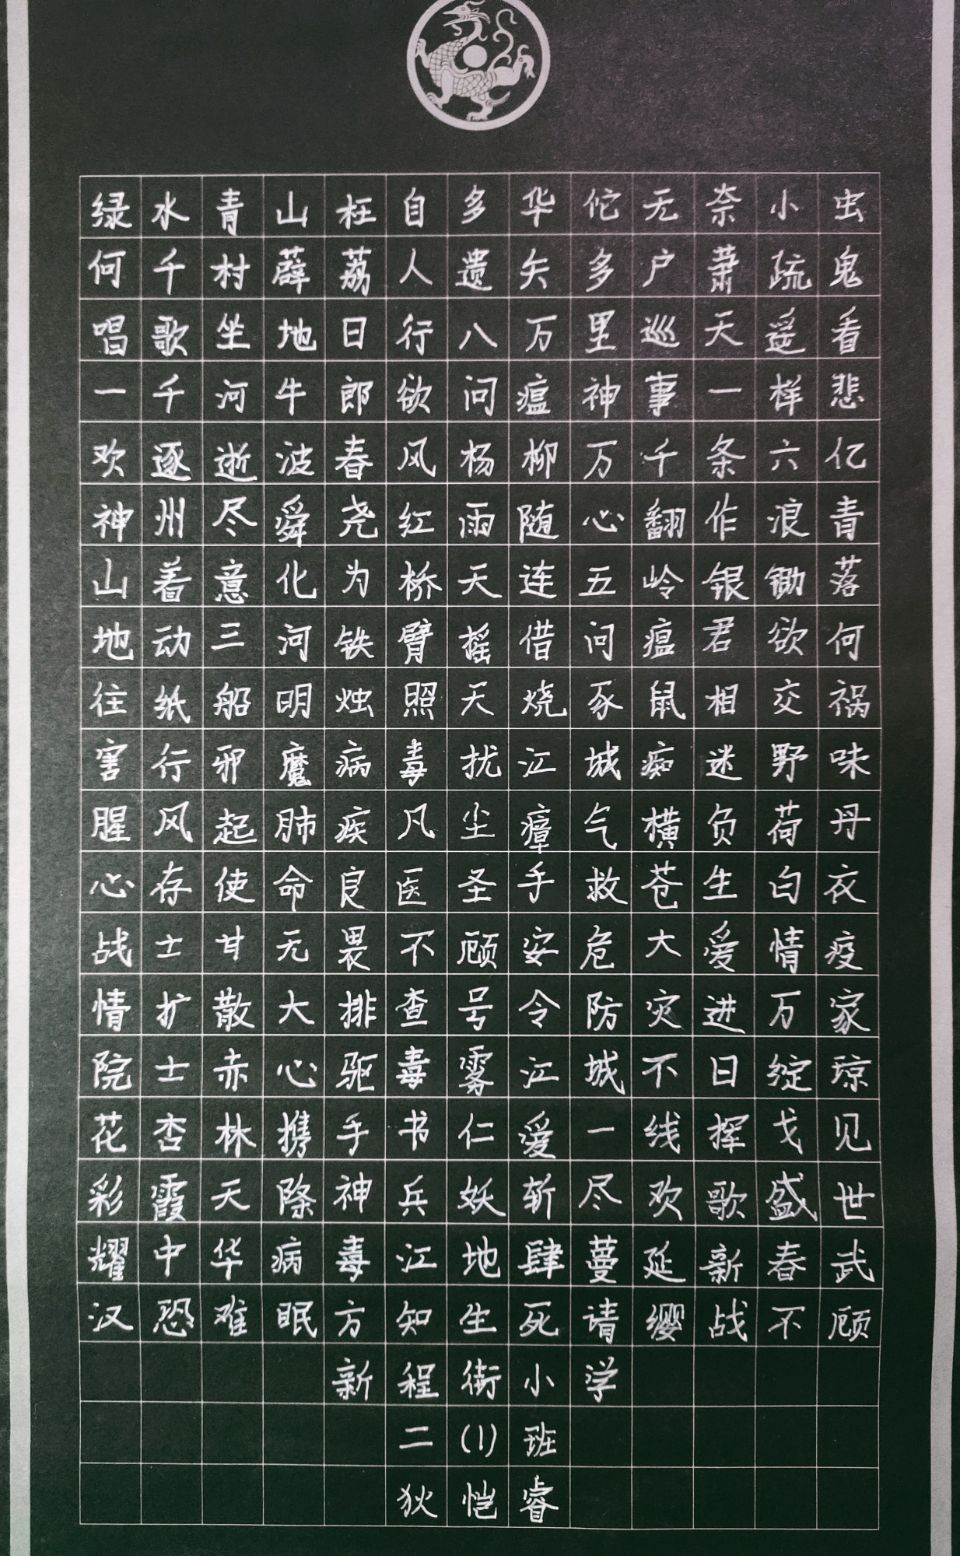 绿水青山枉自多华佗无奈小虫
何千村薜荔人遗矢多户萧疏鬼
唱歌坐地日行八万里巡天遥看
一千河牛郎欲问瘟神事一样悲
欢逐逝波春风杨柳万千条六亿
神州尽舜尧红雨随心翻作浪青
山着意化为桥天连五岭银锄落
地动三河铁臂摇借问瘟君欲何
往纸船明烛照天烧豕鼠相交祸
害行邪魔病毒扰江城痴迷野味
腥风起肺疾凡尘瘴气横负荷丹
心存使命良医圣手救苍生白衣
战士甘无畏不顾安危大爱情疫
情扩散大排查号令防灾进万家
院士赤心驱毒雾江城不日绽琼
花杏林携手书仁爱一线挥戈见
彩霞天降神兵妖斩尽欢歌盛世
耀中华病毒江地肆蔓延新春武
汉恐难眠方知生死请缨战不顾
新程街小学
二(1)班
狄恺睿